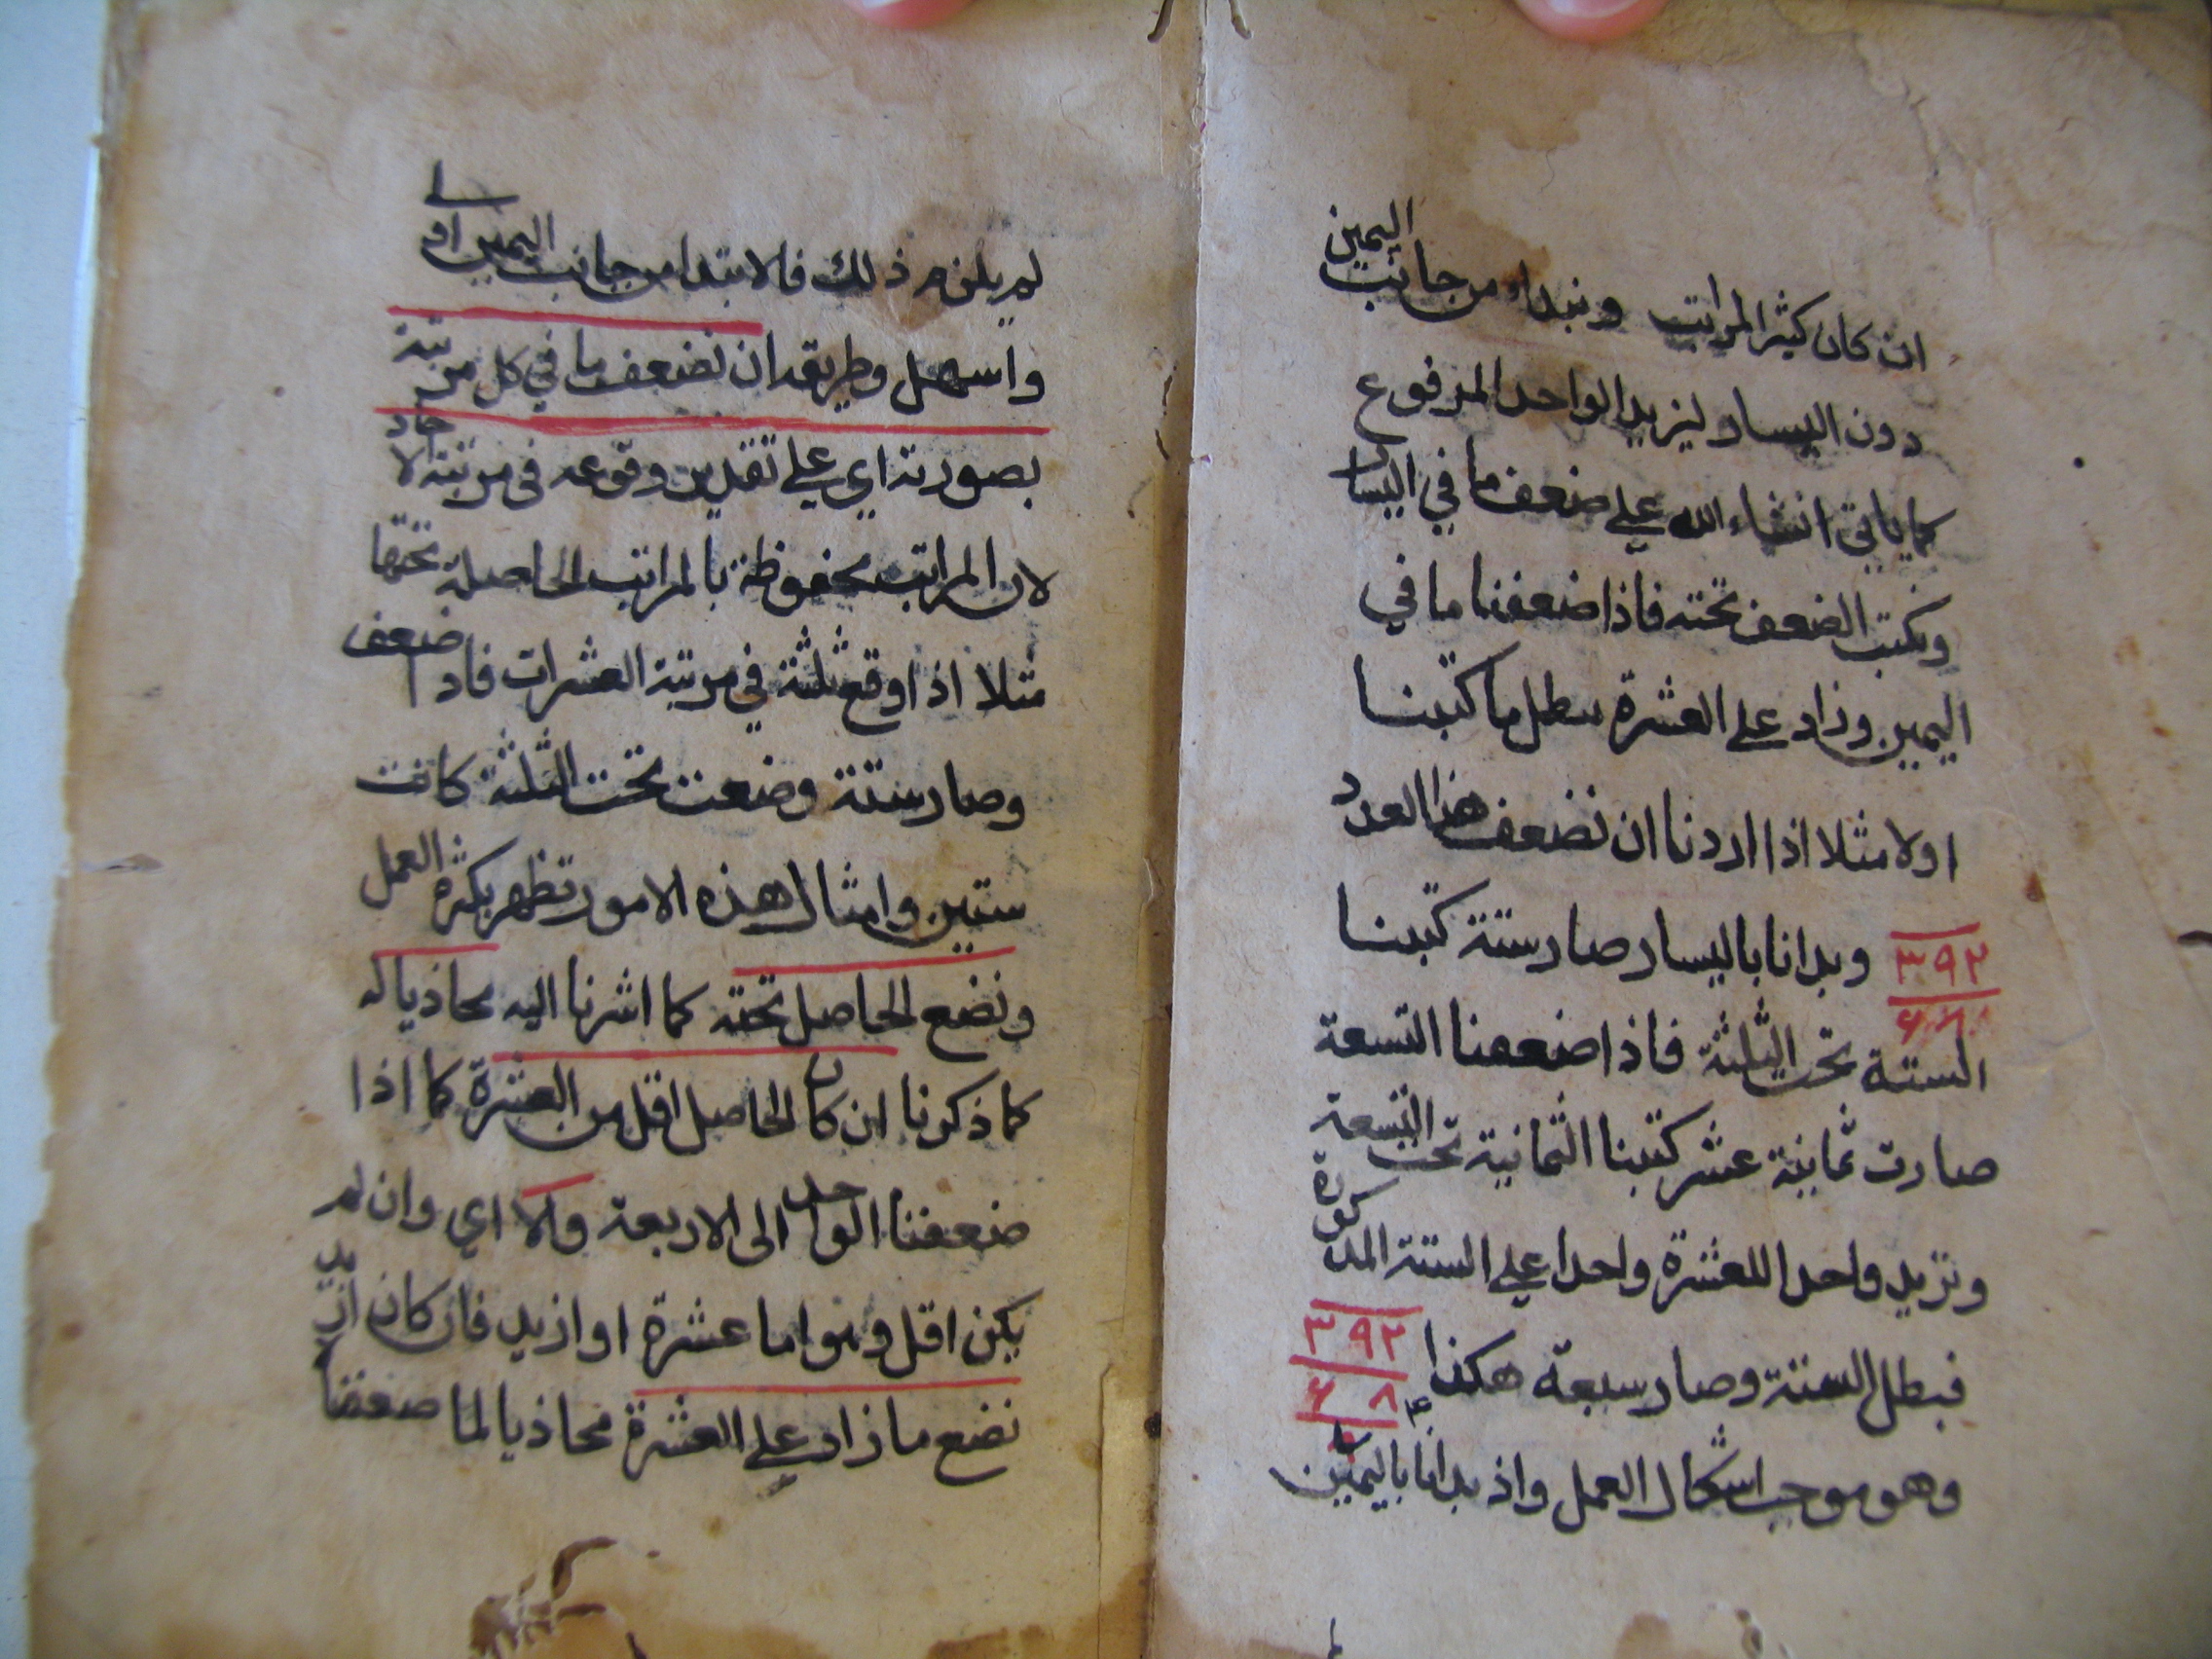 ان كان كثير المراتب ونبداء من جانب اليمين
دون اليسار ليزيد الواحد المرفوع
كما ياتي انشاء الله على ضعف ما في اليسار
ونكتب الضعف تحته فاذا ضعفنا ما في
اليمين وزاد على العشرة بطل ما كتبنا
اولا مثلا اذا اردنا ان نضعف هذا العدد
٣٩٢ وبدانا باليسار صار ستة كتبنا
الستة تحت الثلثة فاذا ضعفنا التسعة
صارت ثمانية عشر كتبنا الثمانية تحت التسعة
ونزيد واحدا للعشرة واحدا على الستة المذكورة
فبطل الستة وصار سبعة هكذا ٣٩٢
٦ ٨
وهو موجب اشكال العمل واذ بدانا باليمين
لم يلزم ذلك فالابتدا من جانب اليمين اولى
واسهل وطريقه ان نضعف ما في كل مرتبة
بصورته اي على تقدير وقوعه في مرتبة الاحاد
لان المراتب محفوظة بالمراتب الحاصلة تحتها
مثلا اذا وقع ثلثة في مرتبة العشرات فاذا ضعف
وصار ستة وضعت تحت الثلثة كانت
ستين وامثال هذه الامور تظهر بكثرة العمل
ونضع الحاصل تحته كما اشرنا اليه محاذيا له
كما ذكرنا ان كان الحاصل اقل من العشرة كما اذا
ضعفنا الواحد الى الاربعة والا اي وان لم
يكن اقل وهو اما عشرة او ازيد فان كان ازيد
نضع ما زاد على العشرة محاذيا لما ضعفنا